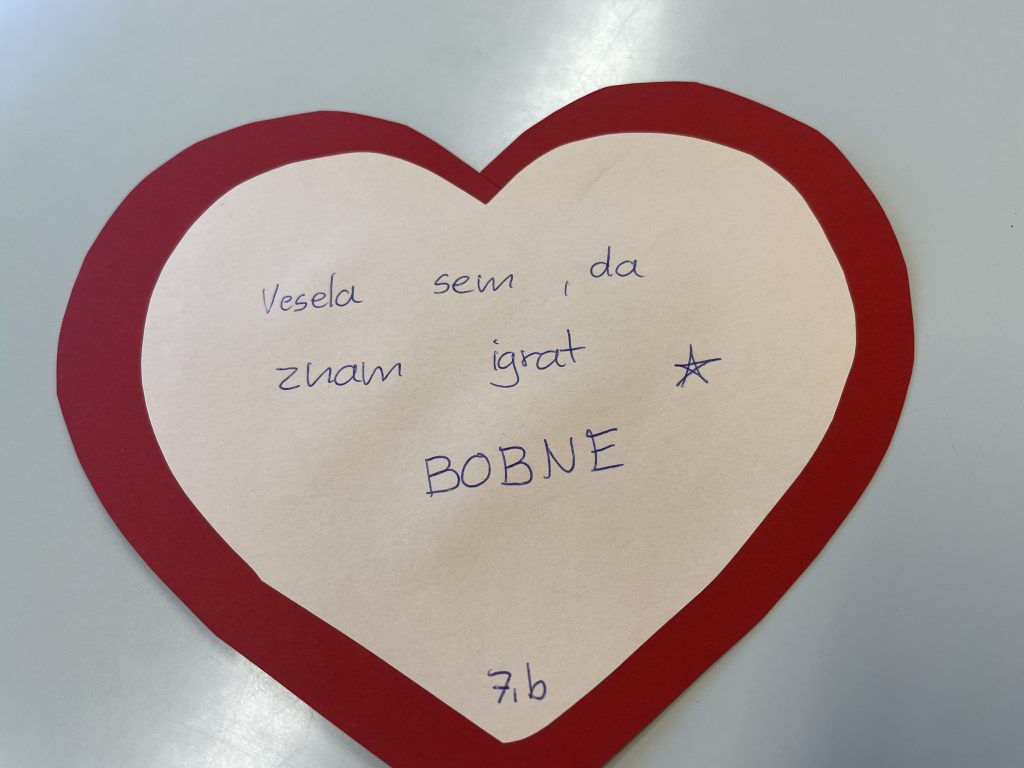 Vesela sem, da
znam igrat
BOBNE
7.b